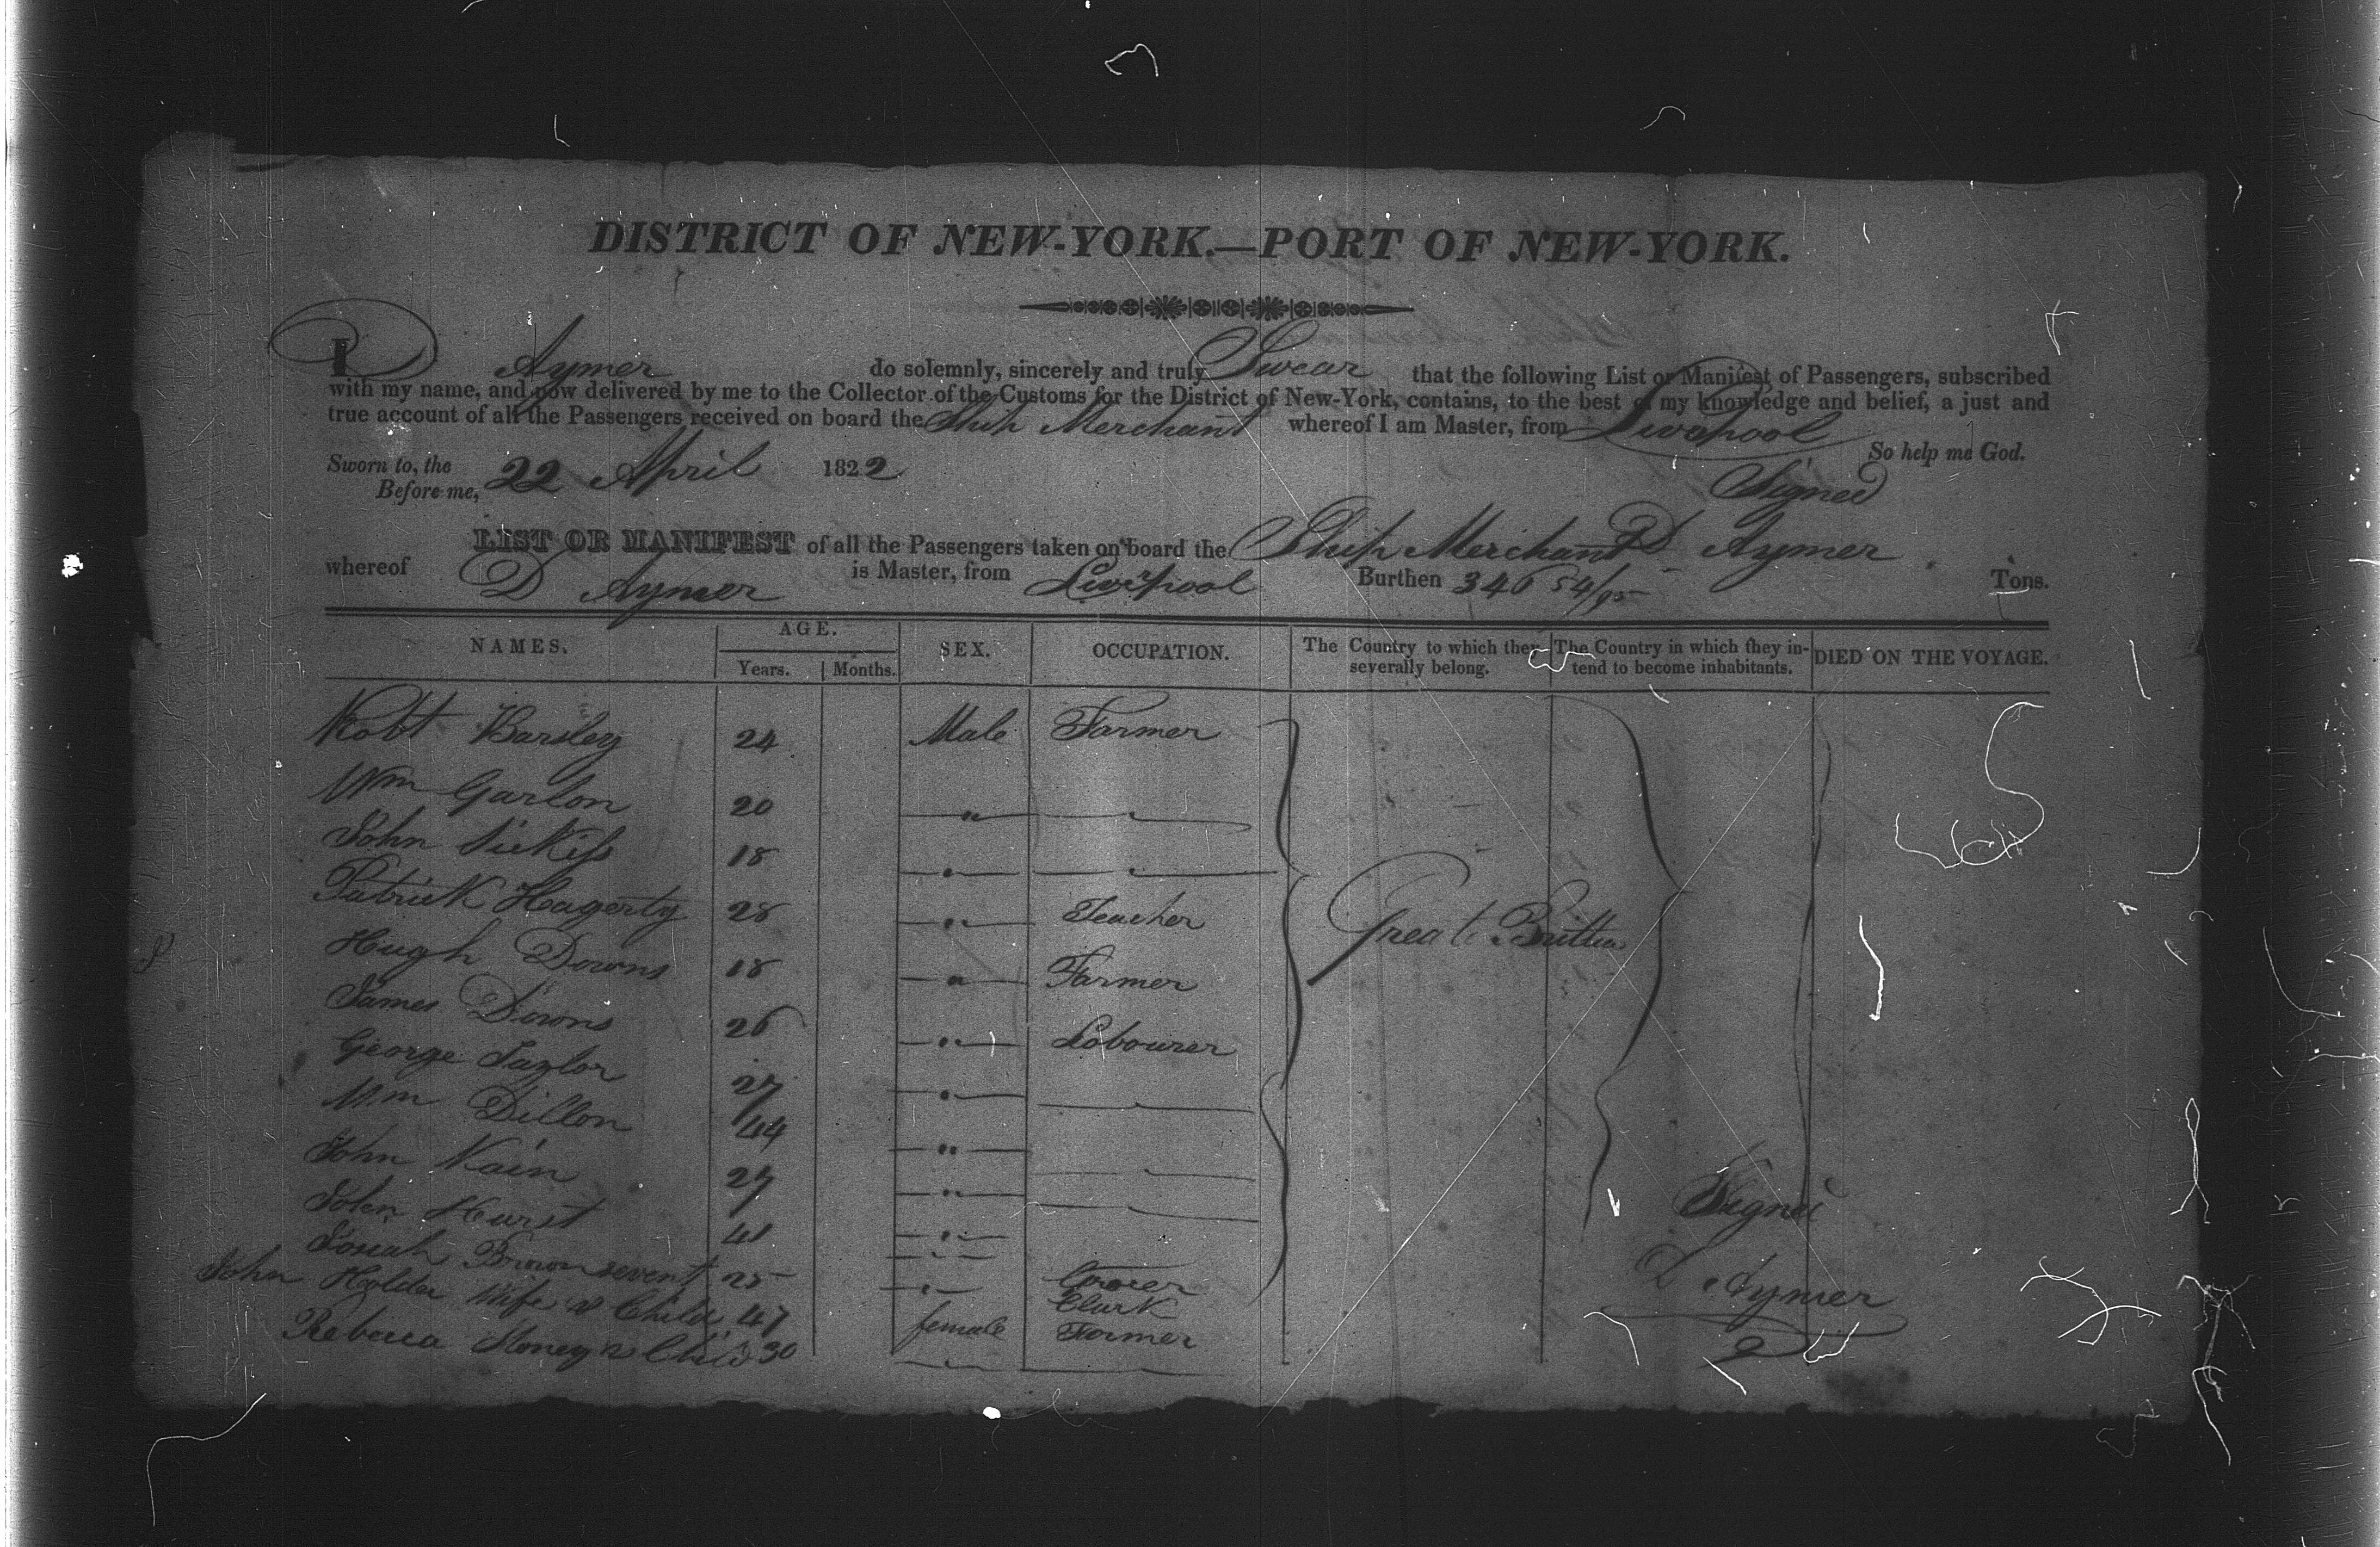 DISTRICT OF NEW-YORK.—PORT OF NEW-YORK.
I D Aymer do solemnly, sincerely and truly Swear that the following List or Manifest of Passengers, subscribed
with my name, and now delivered by me to the Collector of the Customs for the District of New-York, contains, to the best of my knowledge and belief, a just and
true account of all the Passengers received on board the Ship Merchant whereof I am Master, from Liverpool
So help me God.
Sworn to, the 22 April 1822
Before me,
Signed
D Aymer
LIST OR MANIFEST of all the Passengers taken on board the Ship Merchant
whereof D Aymer is Master, from Liverpool Burthen 346 54/95 Tons.
NAMES. AGE. SEX. OCCUPATION. The Country to which they severally belong. The Country in which they intend to become inhabitants. DIED ON THE VOYAGE.
Years. Months.
Robt Barsley 24 Male Farmer
Wm Garlon 20 "
John 18 "
Patrick Hagerty 28 " Teacher
Great Brittain
Hugh Downs 18 " Farmer
James Downs 26 " Labourer
George Taylor 27 "
Wm Dillon 44 "
John Nain 27 "
John Hurst 41 "
Josiah Brown 25 " Grocer
John Holden Wife & Child 47 " Clark
Rebecca Stoney & Child 30 female Farmer
Signed
D Aymer